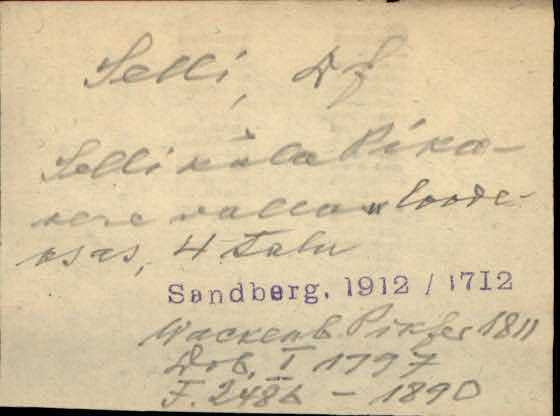 Selli, Df
Selli küla Pika-
vere vallas loode-
osas, 4 talu
Sandberg, 1912 / 1712
Wackenb. Pikfer 1811
Dob. I 1797
F. 2486 - 1890